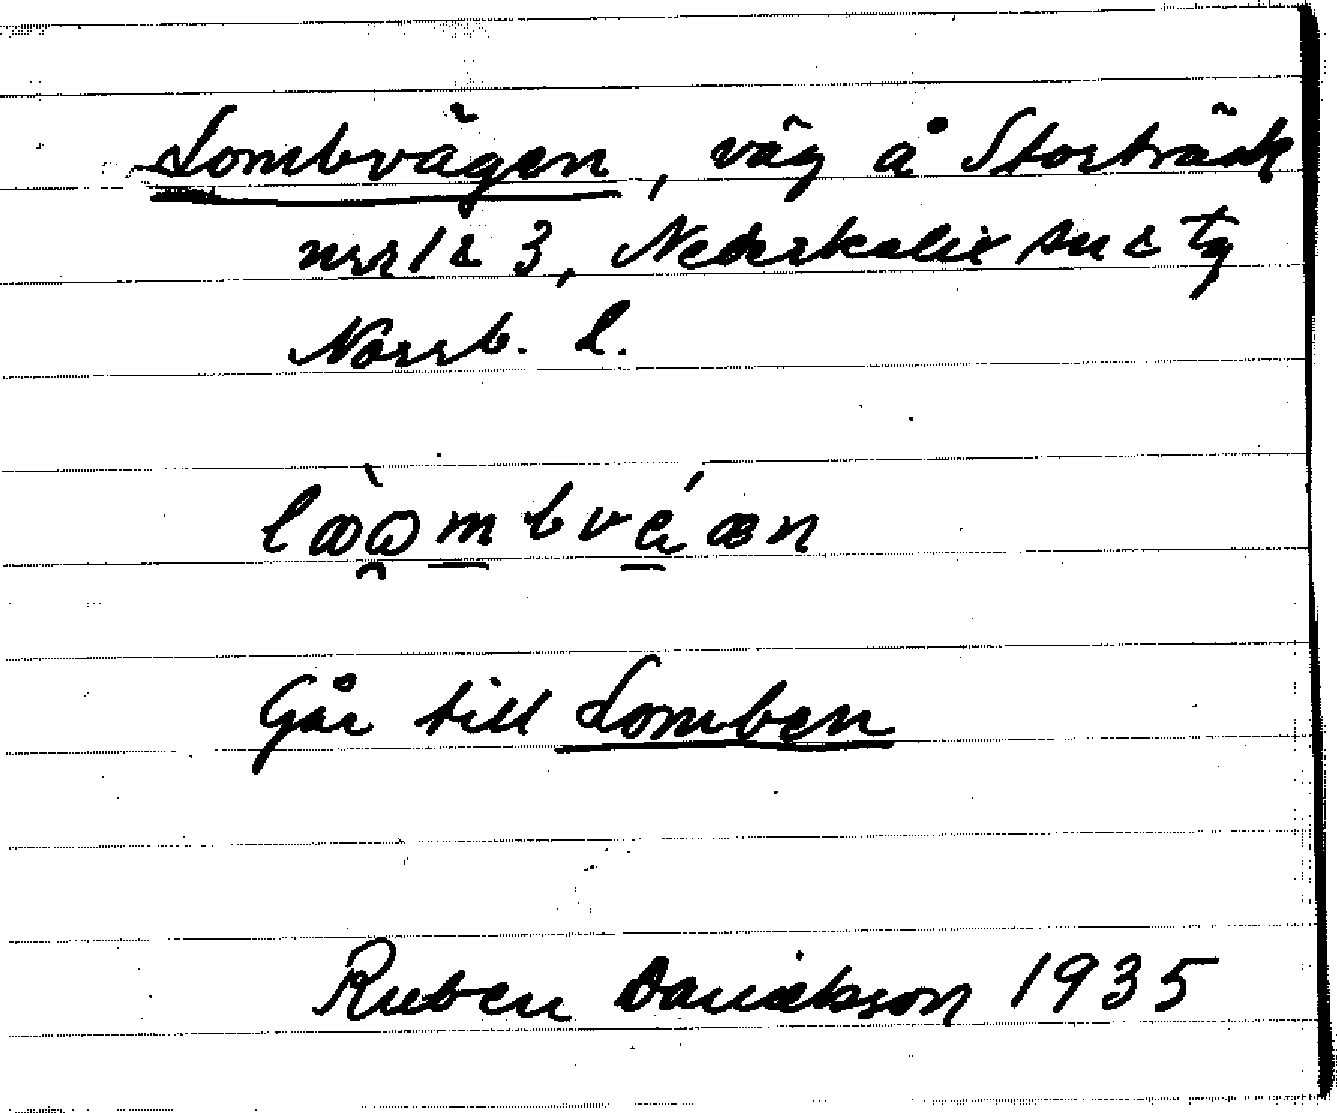 Lombvägen, väg å Storträsk
nrr 1 & 3, Nederkalix sn & tg
Norrb. l.
Går till Lomben
Ruben Danielsson 1935